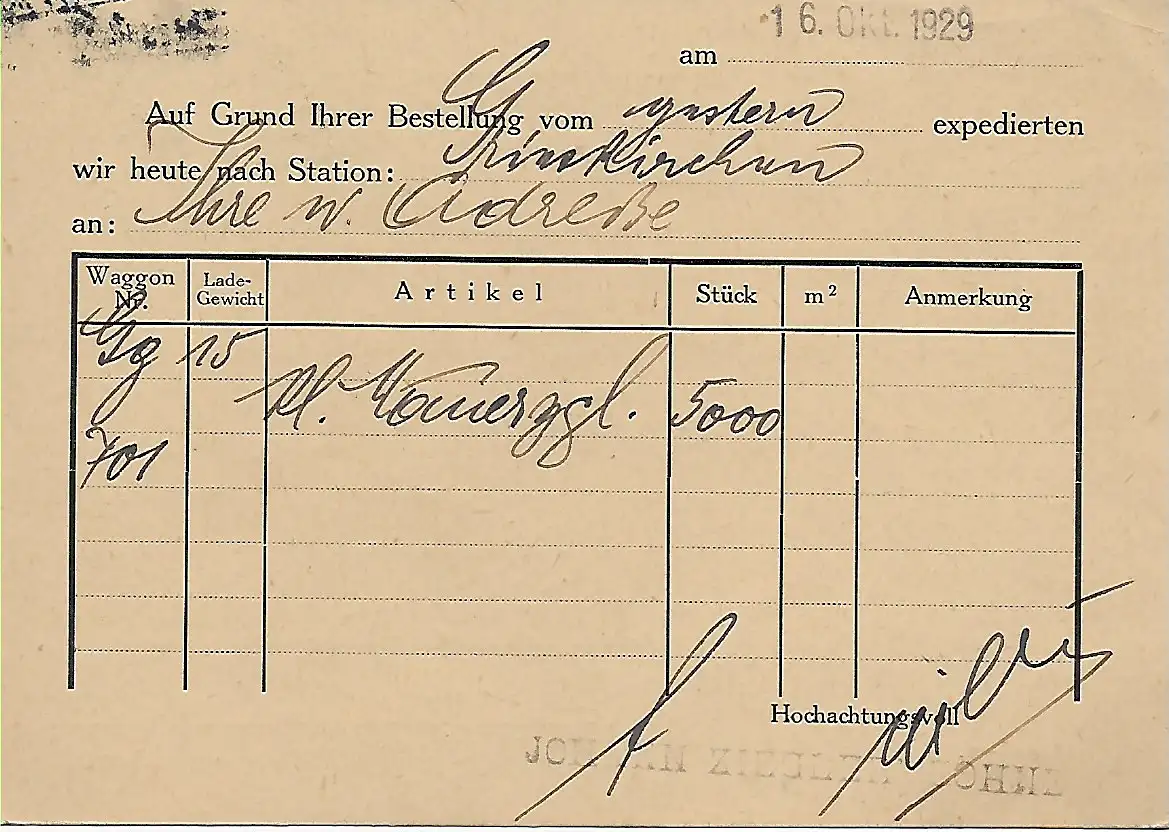 16. Okt. 1929
am
Auf Grund Ihrer Bestellung vom gestern expedierten
wir heute nach Station:
an: Ihre w. Adreße
Waggon Nr. Lade-Gewicht Artikel Stück m² Anmerkung
Gg 15
kl. Mauerzgl. 5000
701
Hochachtungsvoll